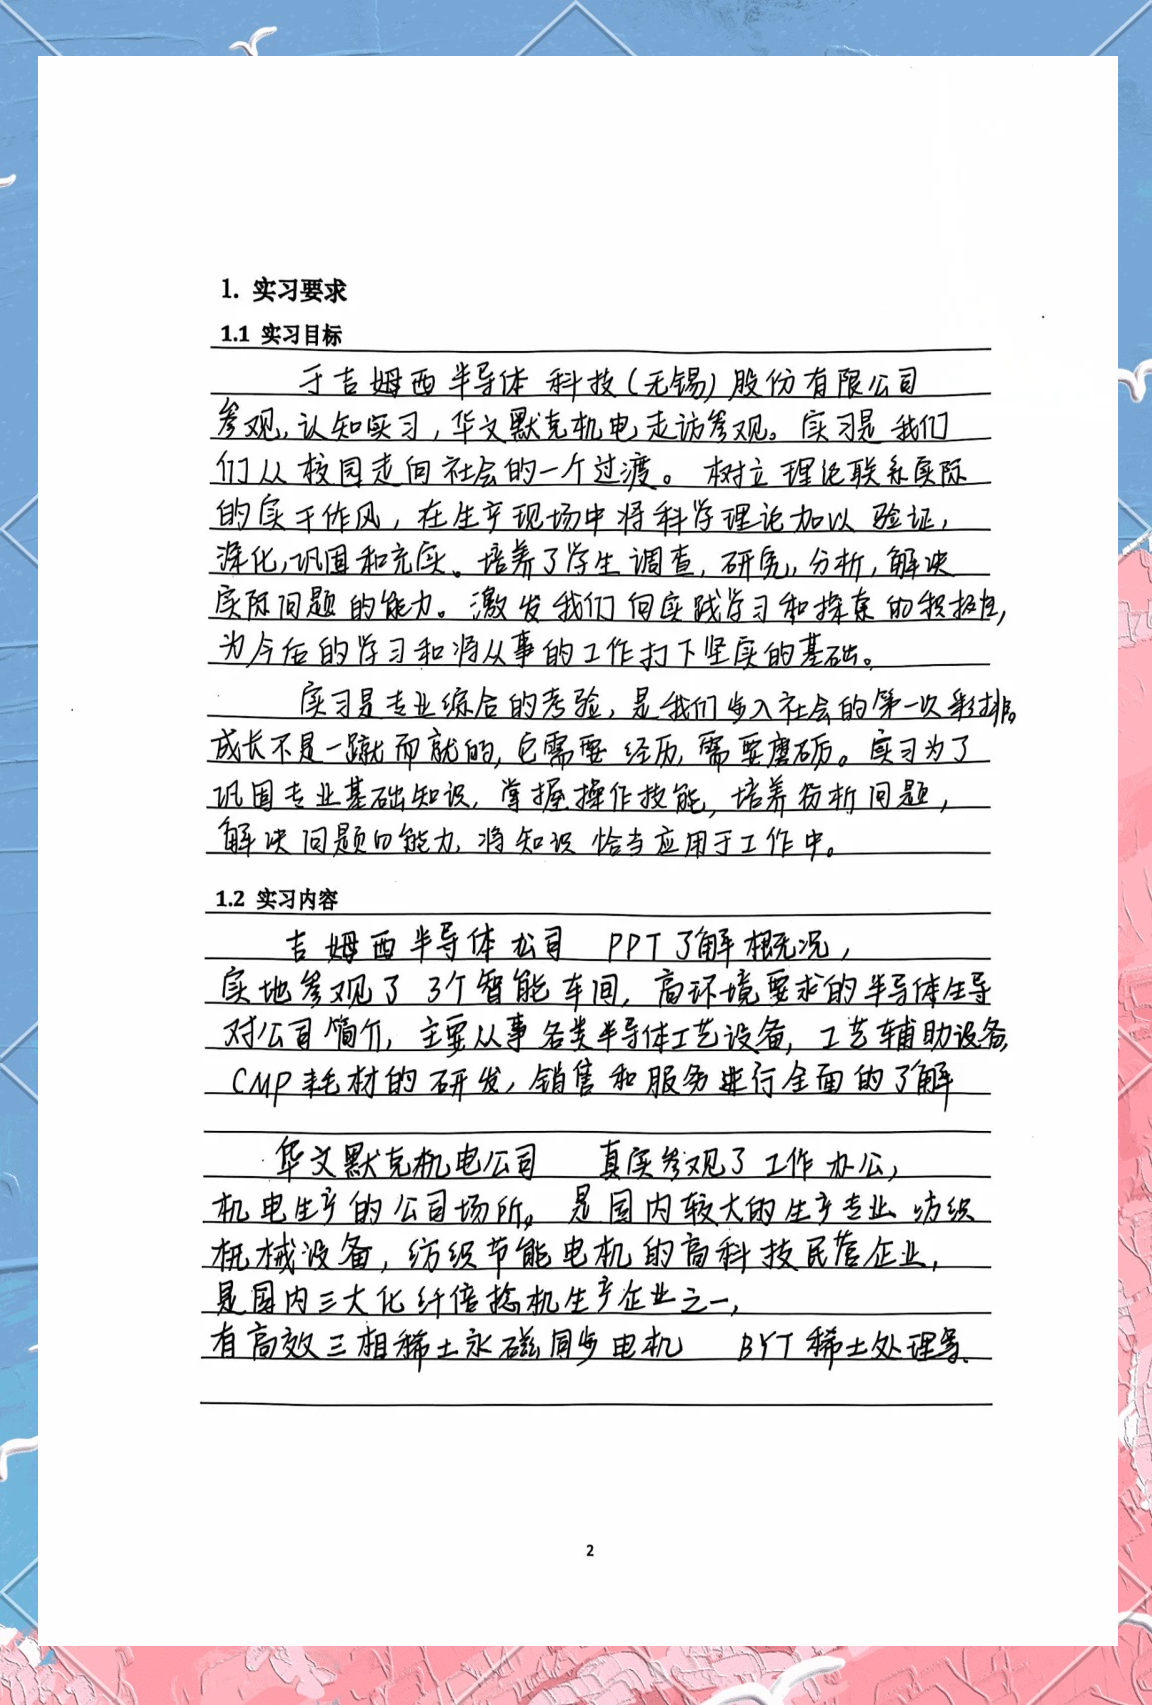 1. 实习要求
1.1 实习目标
于吉姆西半导体科技(无锡)股份有限公司
参观,认知实习,华文默克机电走访参观。实习是我们
们从校园走向社会的一个过渡。树立理论联系实际
的实干作风,在生产现场中将科学理论加以验证,
深化,巩固和充实。培养了学生调查,研究,分析,解决
实际问题的能力。激发我们向实践学习和探索的积极性,
为今后的学习和将从事的工作打下坚实的基础。
实习是专业综合的考验,是我们步入社会的第一次彩排。
成长不是一蹴而就的,它需要经历,需要磨砺。实习为了
巩固专业基础知识,掌握操作技能,培养分析问题,
解决问题的能力,将知识恰当应用于工作中。
1.2 实习内容
吉姆西半导体公司 PPT了解概况,
实地参观了3个智能车间,高环境要求的半导体生导
对公司简介,主要从事各类半导体工艺设备,工艺辅助设备,
CMP耗材的研发,销售和服务进行全面的了解
华文默克机电公司 真实参观了工作办公,
机电生产的公司场所。是国内较大的生产专业纺织
机械设备,纺织节能电机的高科技民营企业,
是国内三大化纤倍捻机生产企业之一,
有高效三相稀土永磁同步电机 BYT稀土处理等、
2